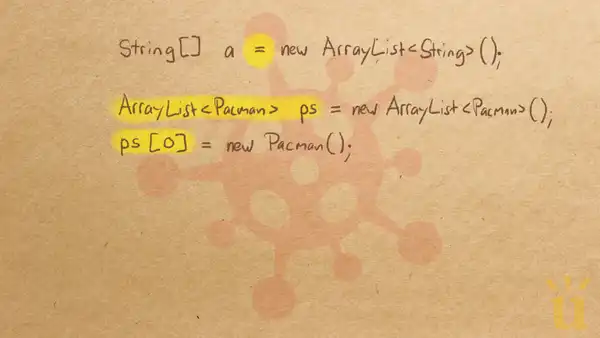 String[] a = new ArrayList<String>();
ArrayList<Pacman> ps = new ArrayList<Pacman>();
ps[0] = new Pacman();
U